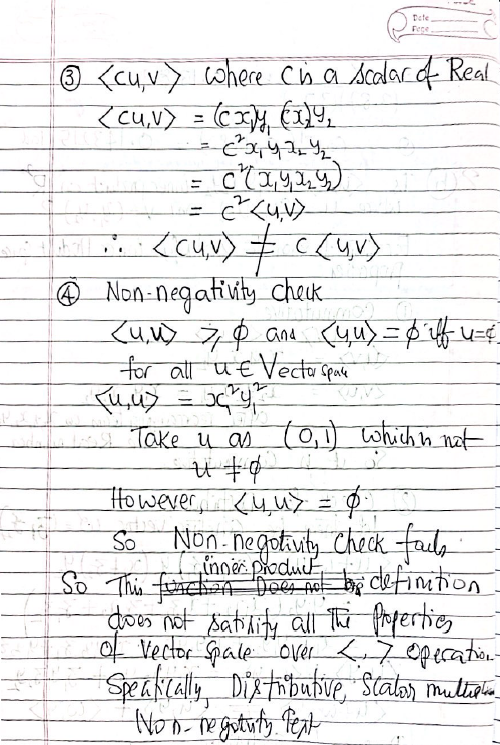 Date
Page
③ <cu,v> where c is a scalar of Real
<cu,v> = (cx₁)y₁ (cx₂)y₂
= c²x₁y₁x₂y₂
= c²(x₁y₁x₂y₂)
= c² <u,v>
∴ <cu,v> ≠ c <u,v>
④ Non-negativity check
<u,u> ≥ ϕ and <u,u> = ϕ iff u=ϕ
for all u ∈ Vector space
<u,u> = x₁²y₁²
Take u as (0,1) which is not
u ≠ ϕ
However, <u,u> = ϕ.
So Non-negativity check fails
inner product
So This function Does not be definition
does not satisfy all The Properties
of vector space over <,> operation
Specifically, Distributive, Scalar multiplica
Non-negativity Test